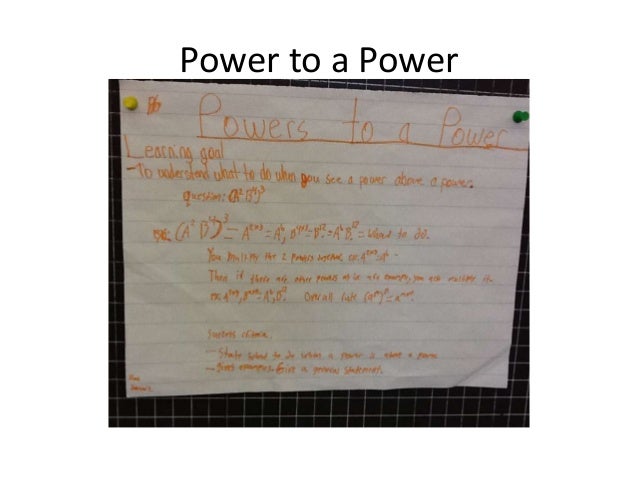 Power to a Power
Powers to a Power
Learning goal
-To understand what to do when you see a power above a power.
question: (A²B⁴)³
(A² B⁴)³ = A²ˣ³ = A⁶, B⁴ˣ³ = B¹² = A⁶ B¹² = What to do.
You multiply the 2 powers ex: A²ˣ³=A⁶
Then if there are other powers as in example, you multiply it.
ex: A²ˣ³, B⁴ˣ³ = A⁶, B¹² Overall rule
Success criteria
- State what to do when a power is above a power
- Gives examples. Give a general statement.